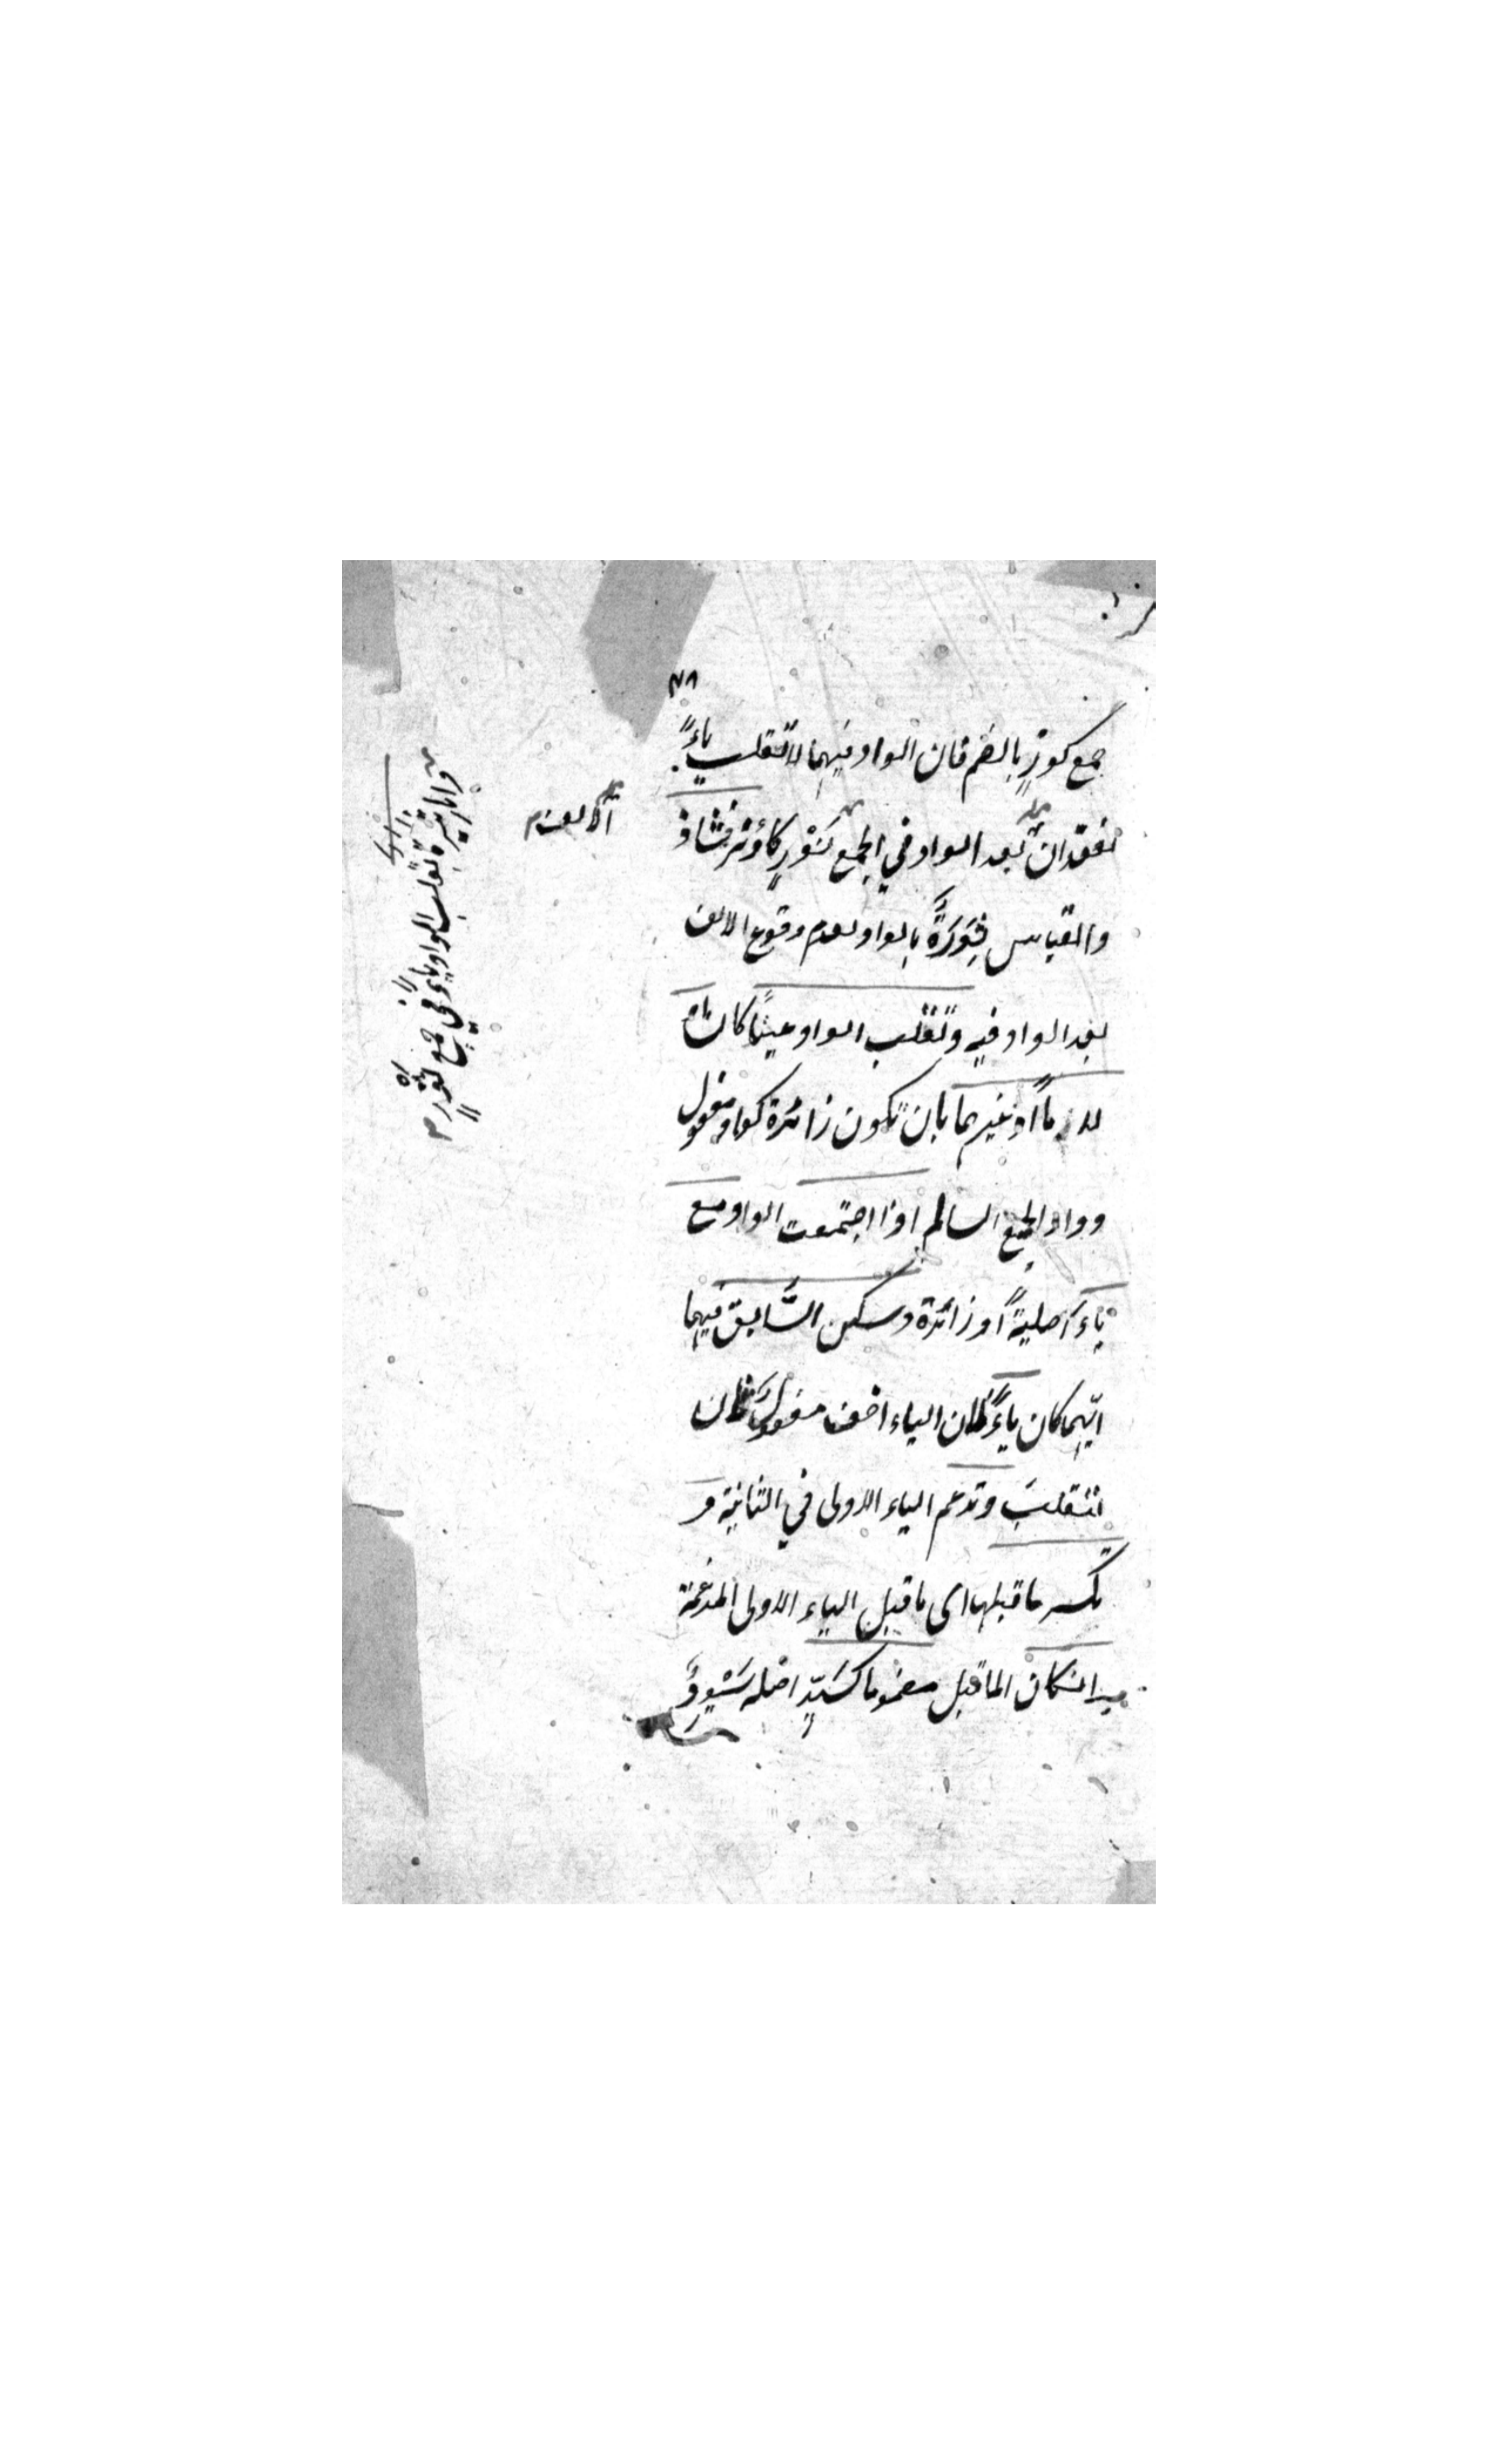 ٧٨
جمع كوزٍ بالضم فان الواو فيهما لا تقلب ياءً
لفقدان بعد الواو في الجمع كثورٍ كاؤنر فشاذ
والقياس ثِوَرَةٌ بالواو لعدم وقوع الالف
بعد الواو فيه وتقلب الواو عيناً كان
لاماً او غيرهما بان تكون زائدة كواو مفعول
وواو الجمع السالم اذا اجتمعت الواو مع
ياءٍ اصليةً او زائدة وسكن السَّابق فيهما
ايّهما كان ياءً لان الياء اخف مفعول ثان
لتقلبَ وتدغم الياء الاولى في الثانية و
يكسر ما قبلها اى ما قبل الياء الاولى المدغمة
ان كان الماقبل مضموما كسَيّدٍ اصله سَيْوِدٌ
الالف م
واما ثيرة بقلب الواو ياءً في جمع ثورٍ م